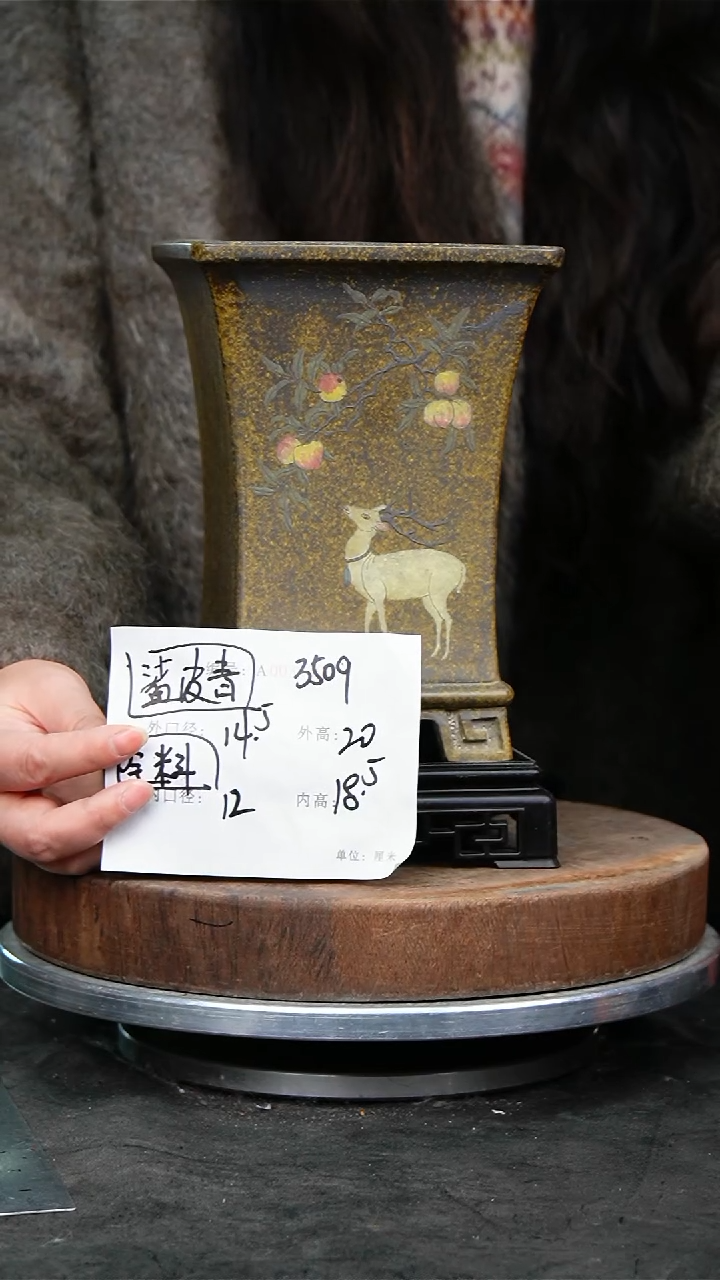 鲨皮青 3509
外口径: 14.5 外高: 20
段料
内口径: 12 内高: 18.5
单位: 厘米